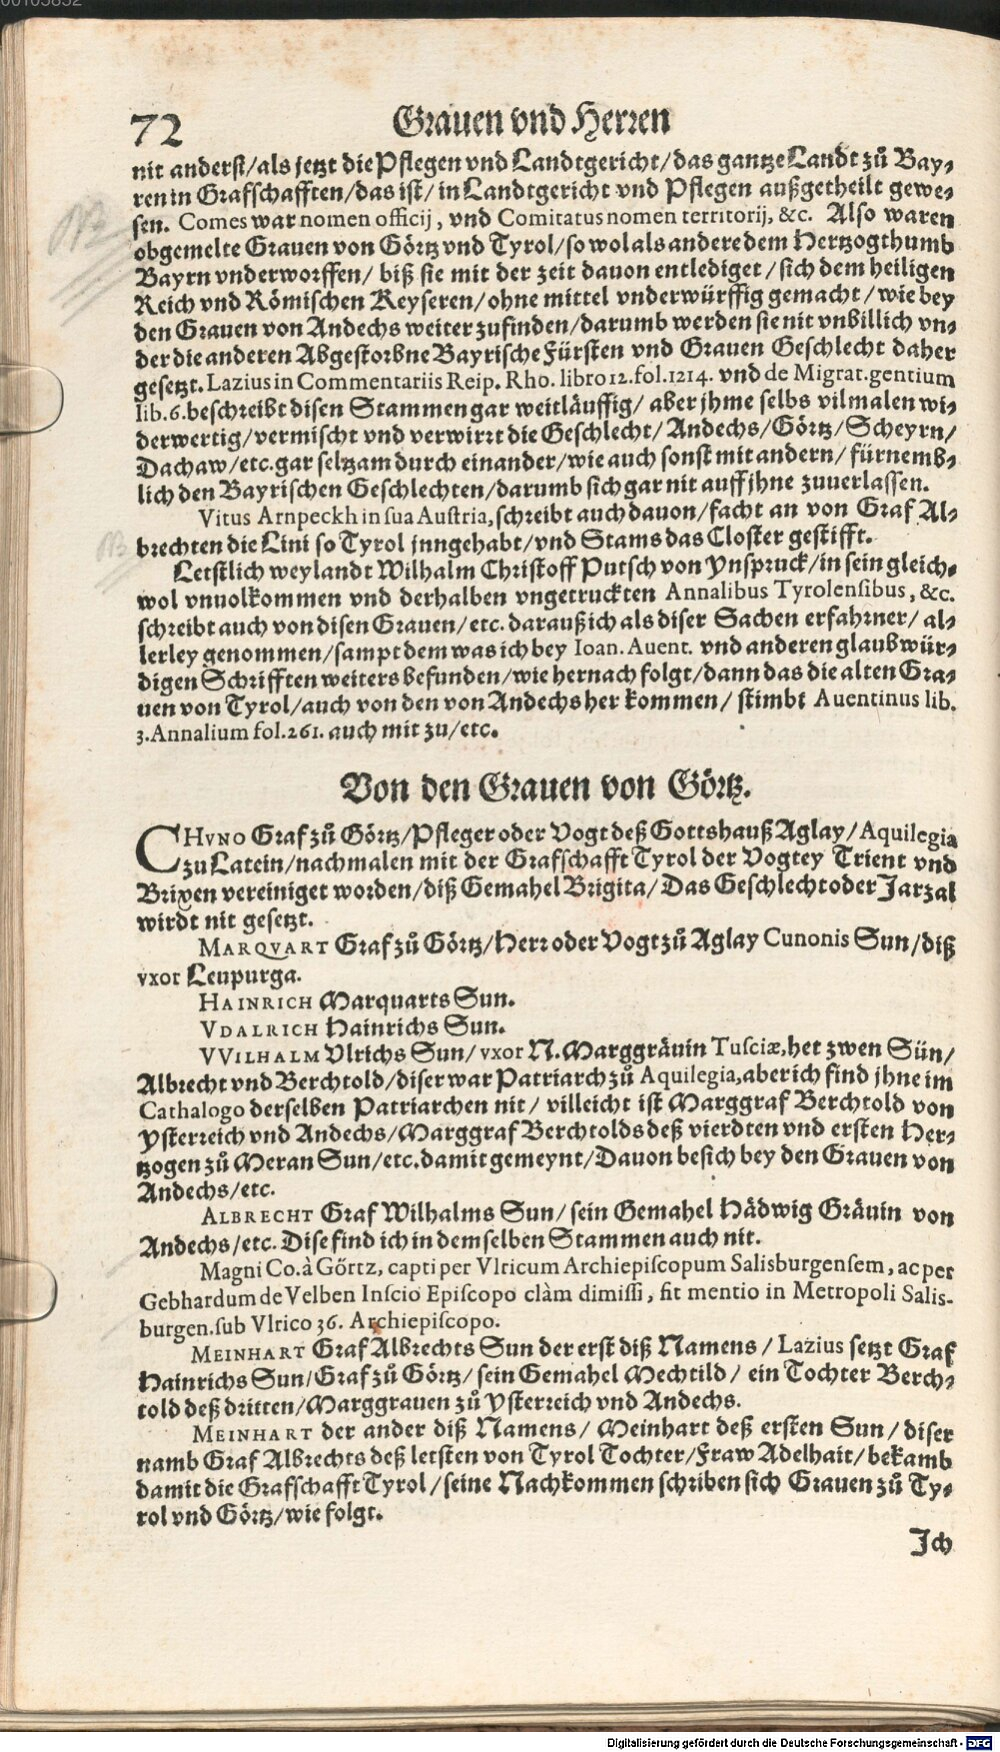 72 Grauen vnd Herren
nit anderst/als jetzt die Pflegen vnd Landtgericht/das gantze Landt zů Bay-
ren in Grafschafften/das ist/in Landtgericht vnd Pflegen außgetheilt gewe-
sen. Comes war nomen officij, vnd Comitatus nomen territorij, &c. Also waren
obgemelte Grauen von Görtz vnd Tyrol/so wol als andere dem Hertzogthumb
Bayrn vnderworffen/ biß sie mit der zeit dauon entlediget/sich dem heiligen
Reich vnd Römischen Keyseren/ohne mittel vnderwürffig gemacht/wie bey
den Grauen von Andechs weiter zufinden/darumb werden sie nit vnbillich vn-
der die anderen Abgestorbne Bayrische Fürsten vnd Grauen Geschlecht daher
gesetzt. Lazius in Commentariis Reip. Rho. libro 12. fol. 1214. vnd de Migrat. gentium
lib. 6. beschreibt disen Stammen gar weitläuffig/ aber jhme selbs vilmalen wi-
derwertig/vermischt vnd verwirrt die Geschlecht/ Andechs/Görtz/Scheyrn/
Dachaw/etc. gar seltzam durch einander/wie auch sonst mit andern/ fürnemb-
lich den Bayrischen Geschlechten/darumb sich gar nit auff jhne zuuerlassen.
Vitus Arnpeckh in sua Austria, schreibt auch dauon/facht an von Graf Al-
brechten die Lini so Tyrol jnngehabt/vnd Stams das Closter gestifft.
Letstlich weylandt Wilhalm Christoff Putsch von Ynspruck/in sein gleich-
wol vnuolkommen vnd derhalben vngetruckten Annalibus Tyrolensibus, &c.
schreibt auch von disen Grauen/etc. darauß ich als diser Sachen erfahrner/ al-
lerley genommen/sampt dem was ich bey Ioan. Auent. vnd anderen glaubwür-
digen Schrifften weiters befunden/wie hernach folgt/dann das die alten Gra-
uen von Tyrol/auch von den von Andechs her kommen/ stimbt Auentinus lib.
3. Annalium fol. 261. auch mit zu/etc.
Von den Grauen von Görtz.
CHVNO Graf zů Görtz/Pfleger oder Vogt deß Gottshauß Aglay/Aquilegia
zu Latein/nachmalen mit der Grafschafft Tyrol der Vogtey Trient vnd
Brixen vereiniget worden/diß Gemahel Brigita/Das Geschlecht oder Jarzal
wirdt nit gesetzt.
MARQVART Graf zů Görtz/Herr oder Vogt zů Aglay Cunonis Sun/diß
vxor Leupurga.
HAINRICH Marquarts Sun.
VDALRICH Hainrichs Sun.
VVILHALM Vlrichs Sun/ vxor N. Marggräuin Tusciæ, het zwen Sün/
Albrecht vnd Berchtold/diser war Patriarch zů Aquilegia, aber ich find jhne im
Cathalogo derselben Patriarchen nit/ villeicht ist Marggraf Berchtold von
Ysterreich vnd Andechs/Marggraf Berchtolds deß vierdten vnd ersten Her-
tzogen zů Meran Sun/etc. damit gemeynt/Dauon besich bey den Grauen von
Andechs/etc.
ALBRECHT Graf Wilhalms Sun/ sein Gemahel Hädwig Gräuin von
Andechs/etc. Dise find ich in dem selben Stammen auch nit.
Magni Co. à Görtz, capti per Vlricum Archiepiscopum Salisburgensem, ac per
Gebhardum de Velben Inscio Episcopo clàm dimissi, fit mentio in Metropoli Salis-
burgen. sub Vlrico 36. Archiepiscopo.
MEINHART Graf Albrechts Sun der erst diß Namens/ Lazius setzt Graf
Hainrichs Sun/Graf zů Görtz/ sein Gemahel Mechtild/ ein Tochter Berch-
told deß dritten/Marggrauen zů Ysterreich vnd Andechs.
MEINHART der ander diß Namens/ Meinhart deß ersten Sun/ diser
namb Graf Albrechts deß letsten von Tyrol Tochter/Fraw Adelhait/bekamb
damit die Grafschafft Tyrol/seine Nachkommen schriben sich Grauen zů Ty-
rol vnd Görtz/wie folgt.
Ich
Digitalisierung gefördert durch die Deutsche Forschungsgemeinschaft - DFG